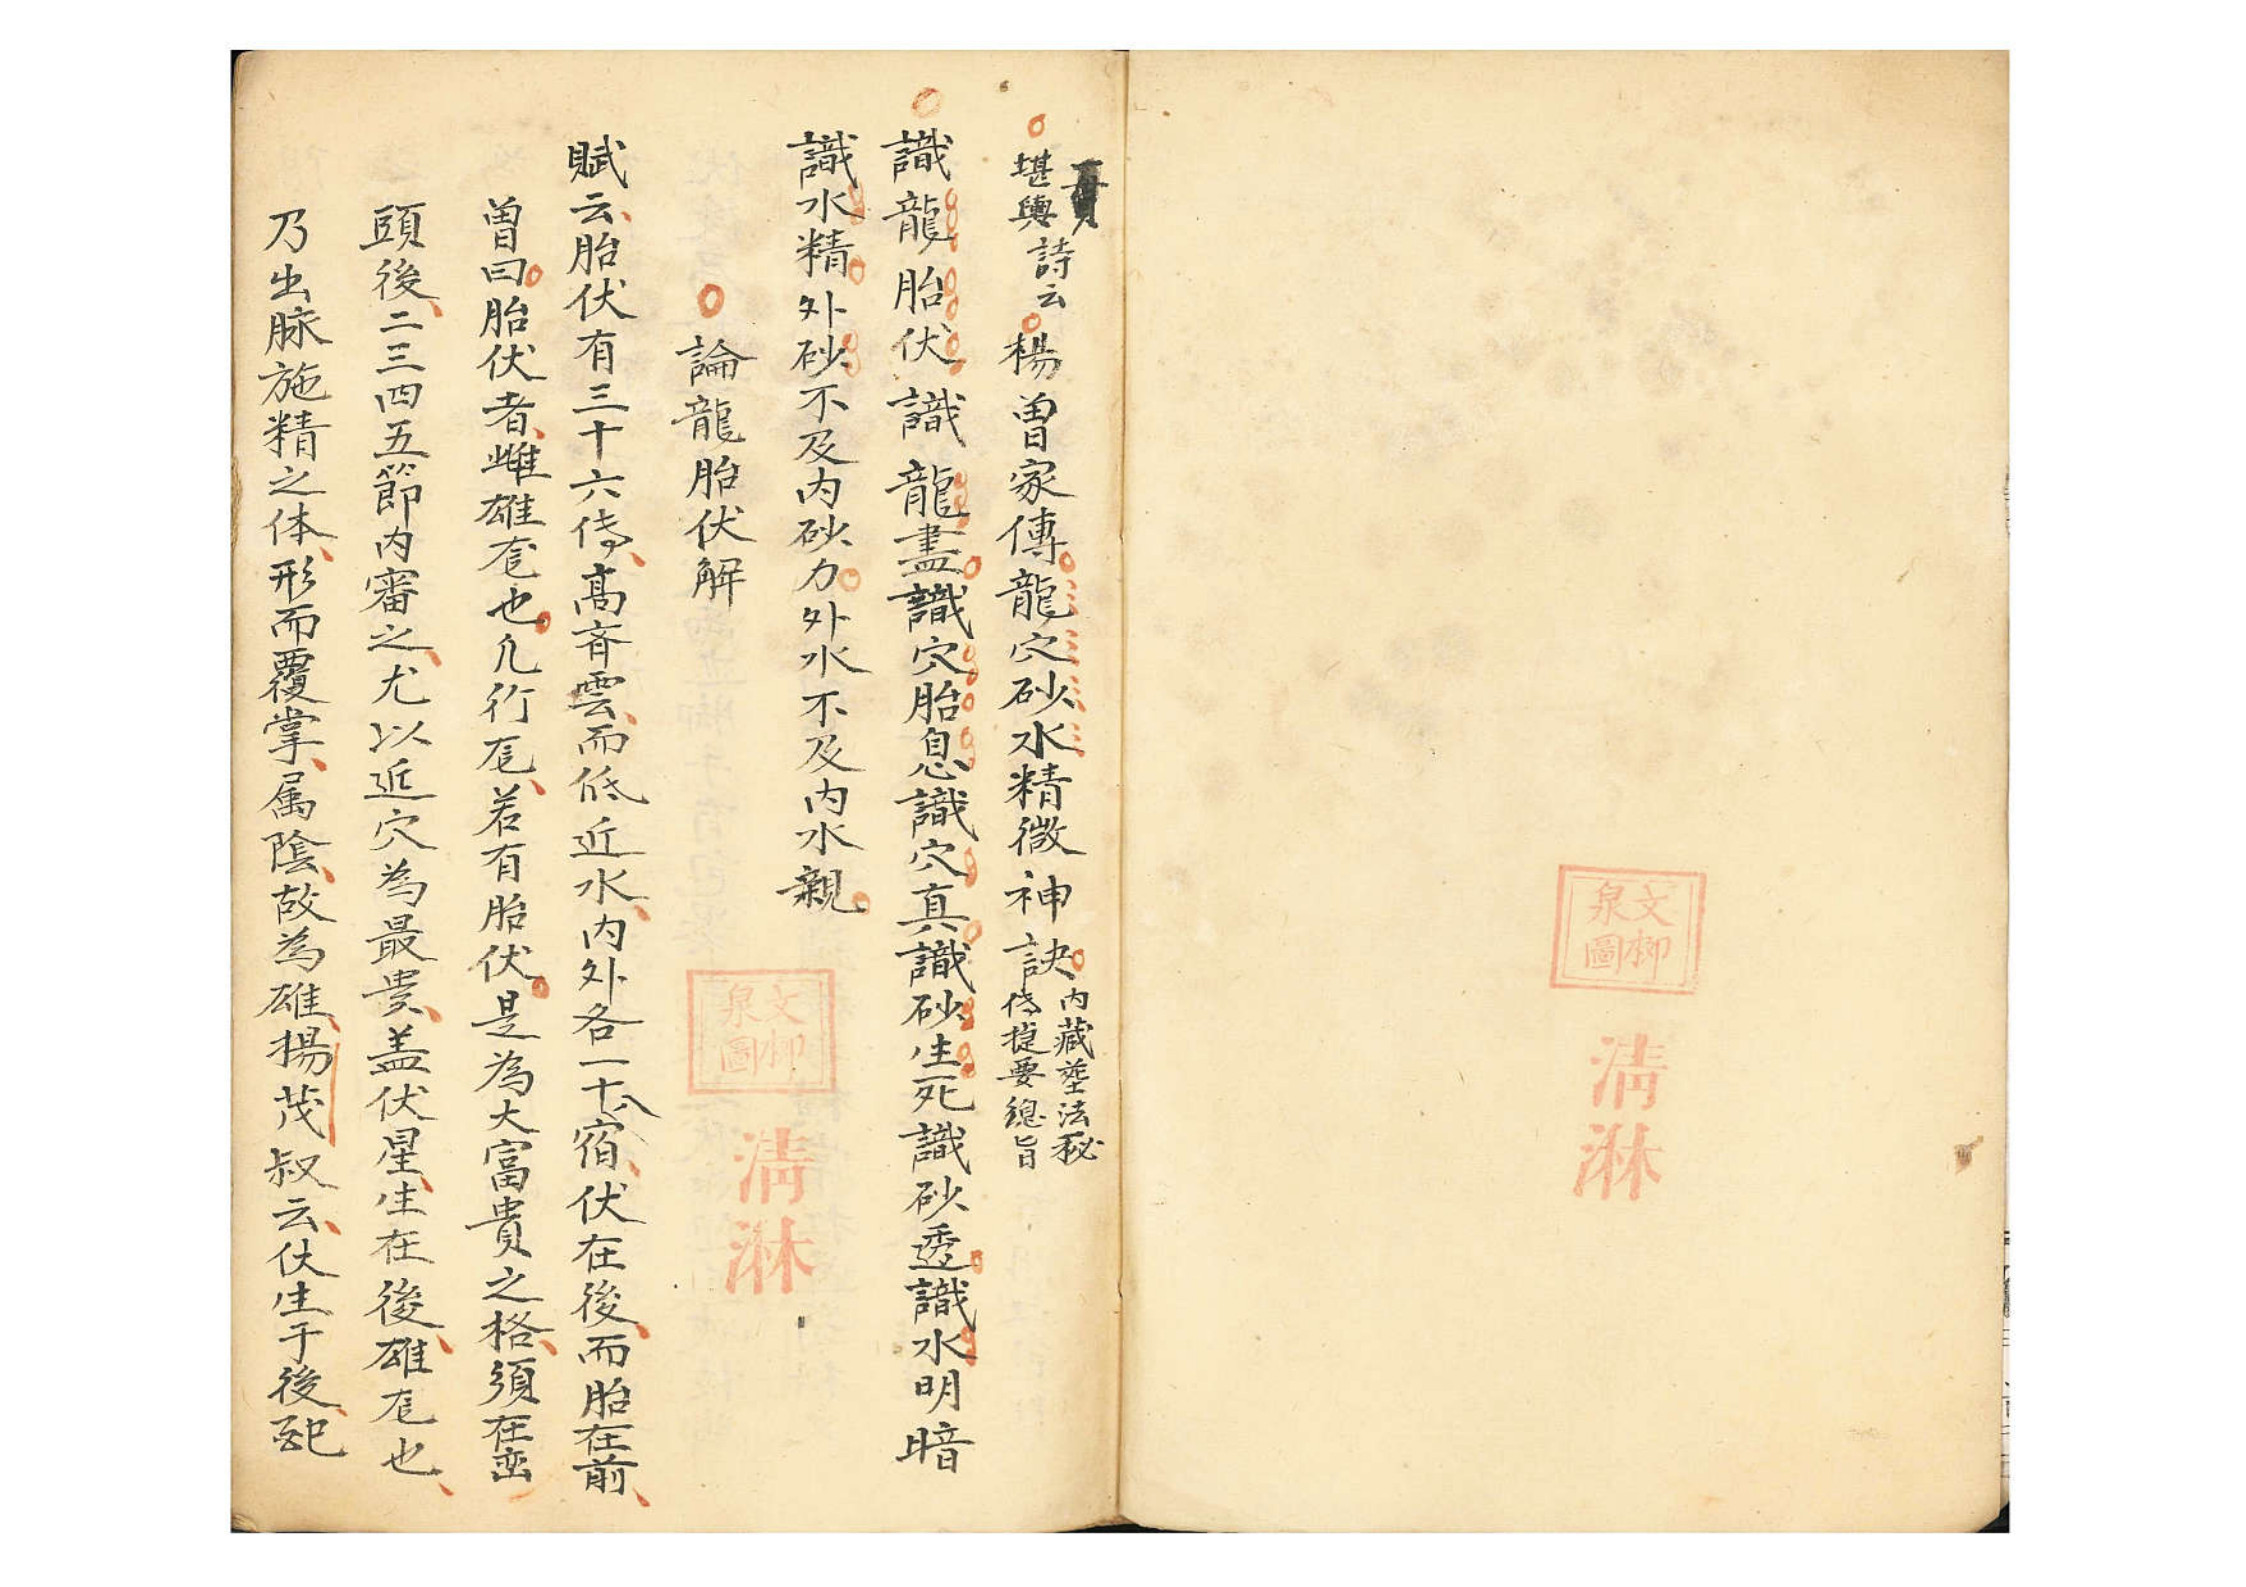 堪輿詩云楊曾家傳龍穴砂水精微神訣
內藏塟法秘
侍捷要總旨
識龍胎伏識龍盡識穴胎息識穴真識砂生死識砂透識水明暗
識水精外砂不及內砂力外水不及內水親
論龍胎伏解
賦云胎伏有三十六侍高斉雲而低近水內外各一十八宿伏在後而胎在前
曾曰胎伏者雌雄竜也凢行竜若有胎伏是為大富貴之格須在巒
頭後二三四五節內審之尤以近穴為最貴盖伏星生在後雄竜也
乃出脉施精之体形而覆掌属陰故為雄楊茂叔云伏生于後
文泉
柳圖
清淋
文泉
柳圖
清淋